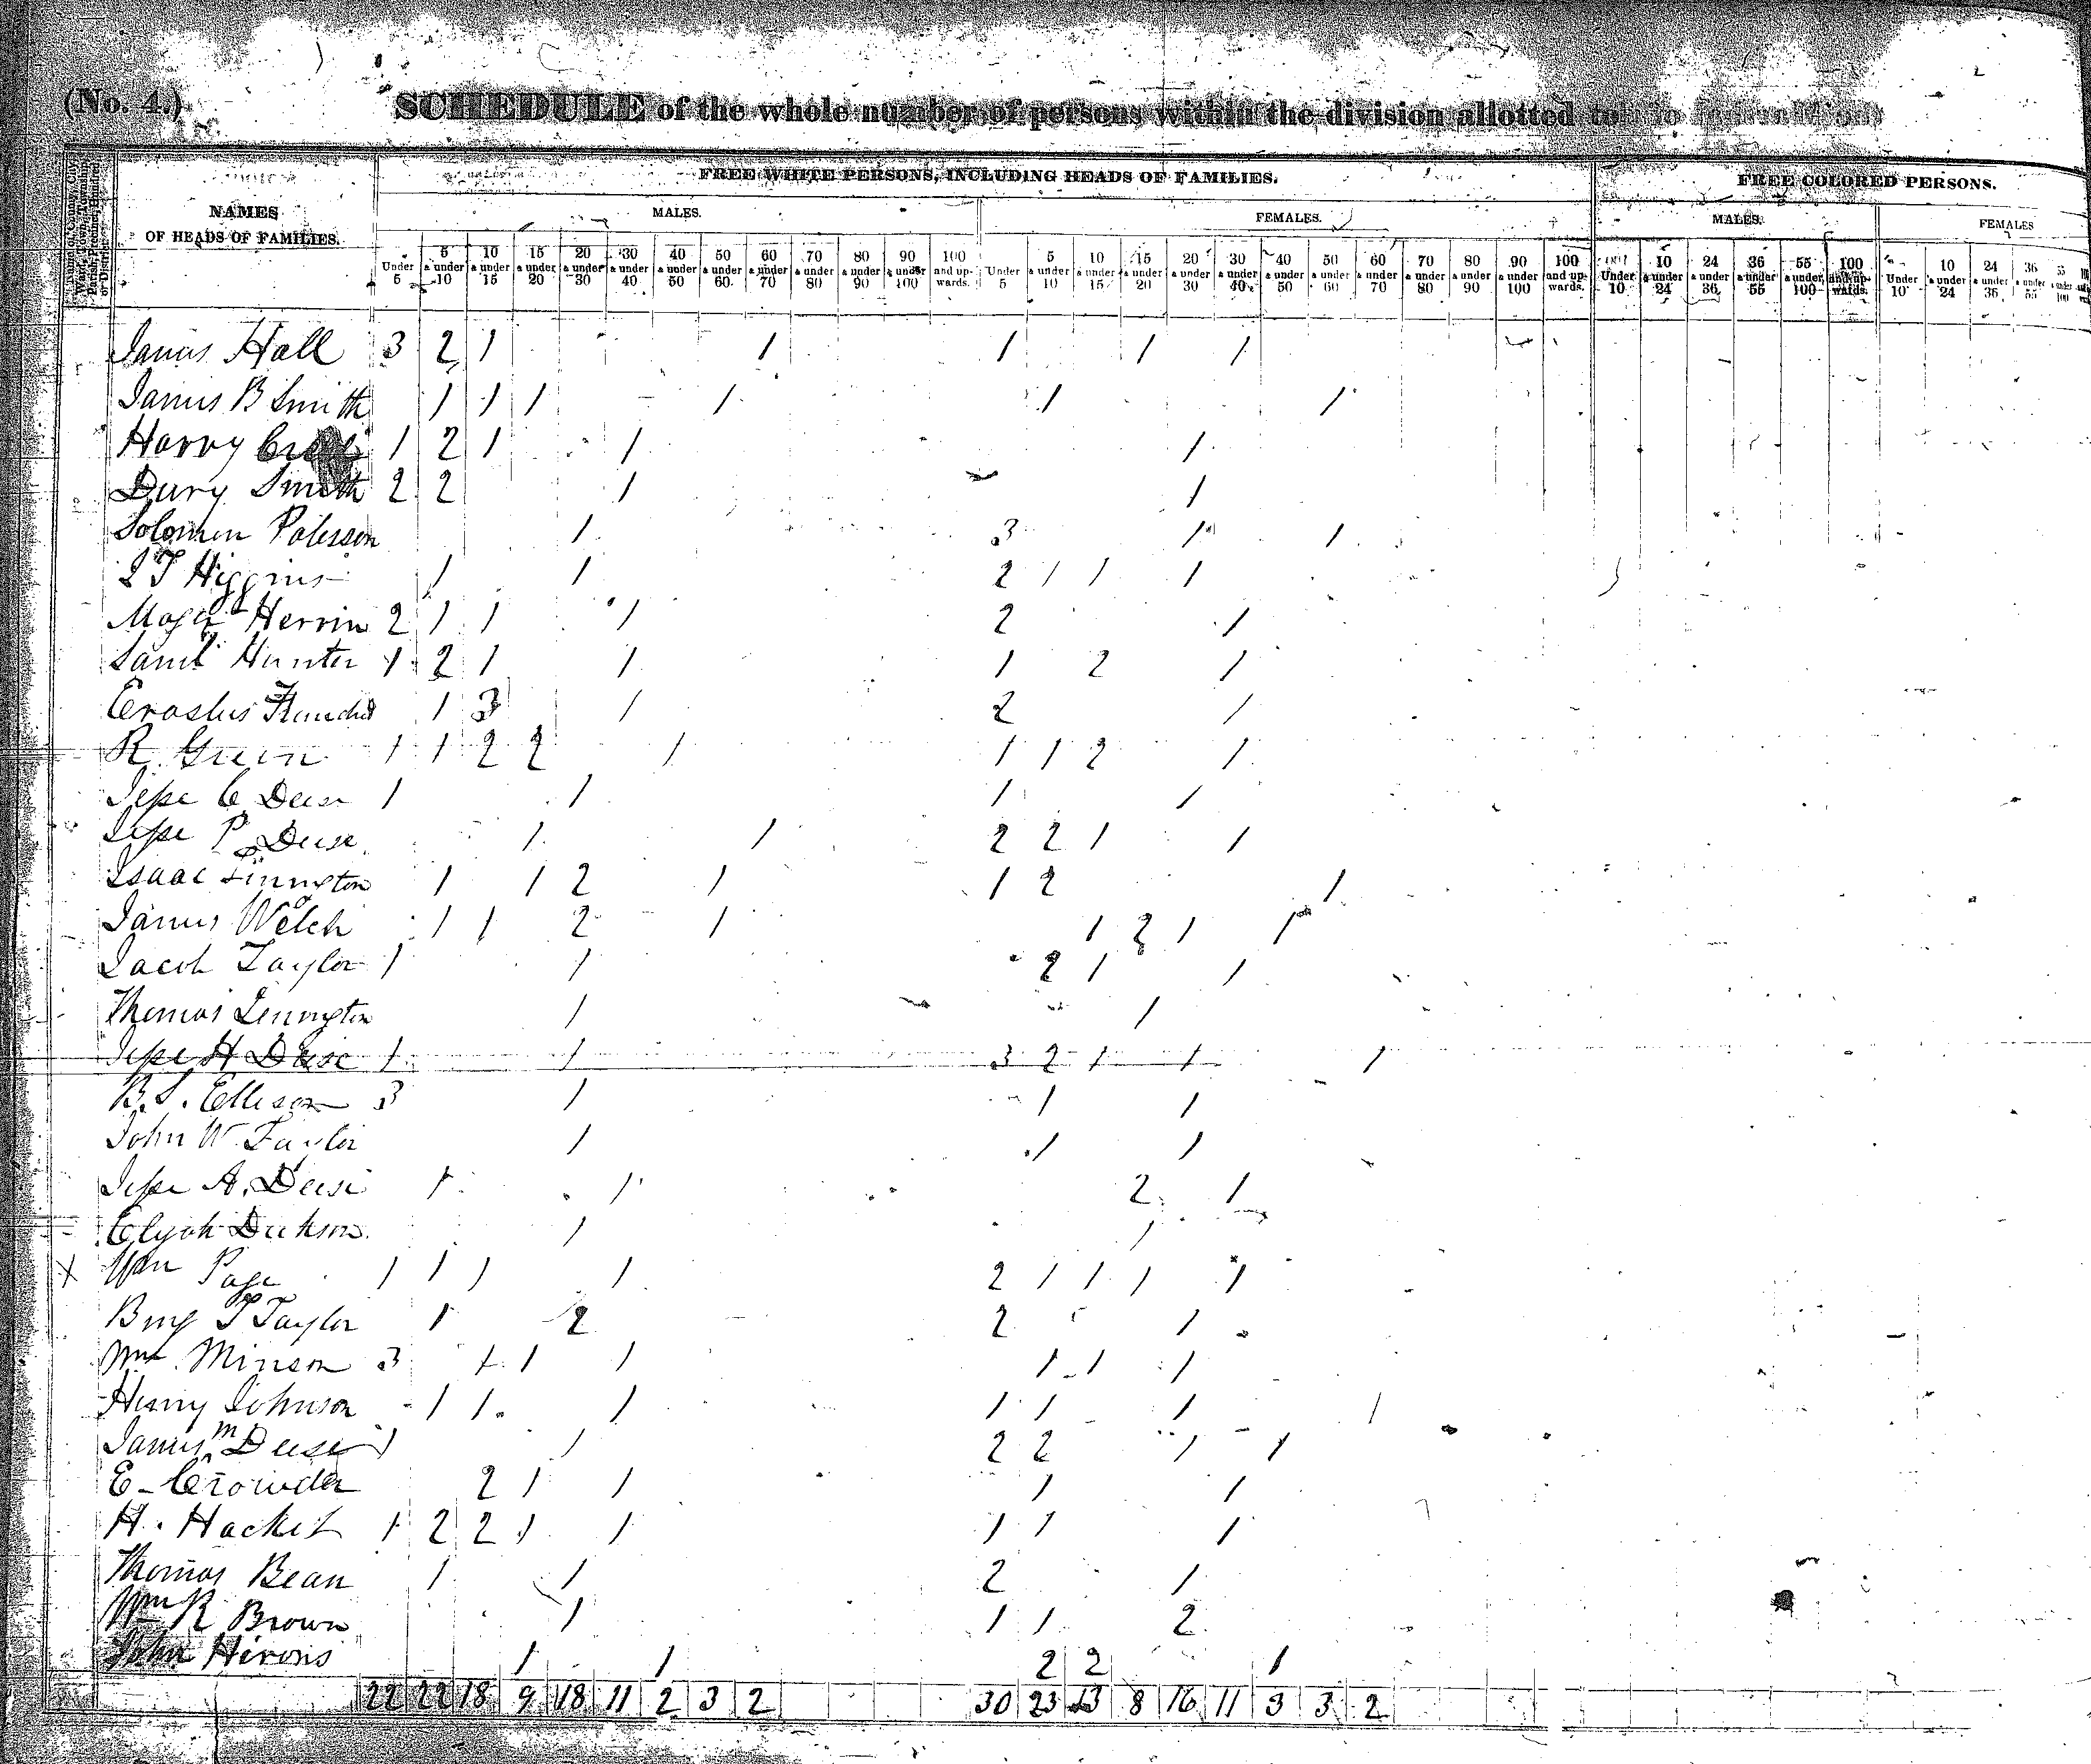 (No. 4.)
SCHEDULE of the whole number of persons within the division allotted to
FREE WHITE PERSONS, INCLUDING HEADS OF FAMILIES. FREE COLORED PERSONS.
NAMES OF HEADS OF FAMILIES.
MALES. FEMALES. MALES. FEMALES
Under 5 | 5 & under 10 | 10 & under 15 | 15 & under 20 | 20 & under 30 | 30 & under 40 | 40 & under 50 | 50 & under 60 | 60 & under 70 | 70 & under 80 | 80 & under 90 | 90 & under 100 | 100 and upwards. | Under 5 | 5 & under 10 | 10 & under 15 | 15 & under 20 | 20 & under 30 | 30 & under 40 | 40 & under 50 | 50 & under 60 | 60 & under 70 | 70 & under 80 | 80 & under 90 | 90 & under 100 | 100 and upwards. | Under 10 | 10 & under 24 | 24 & under 36 | 36 & under 55 | 55 & under 100 | 100 and upwards. | Under 10 | 10 & under 24 | 24 & under 36 | 36 & under 55 | 55 & under 100
James Hall 3 2 1 1 1 1 1
James B Smith 1 1 1 1 1 1
Harvy 1 2 1 1 1
Dury Smith 2 2 1 1
Solomon 1 3 1 1
Higgins 1 1 2 1 1 1
Herrin 2 1 1 1 2 1
Saml Hunter 1 2 1 1 1 2 1
Erastus 1 3 1 2 1
R Green 1 1 2 2 1 1 1 2 1
Jesse C Deese 1 1 1 1
Jesse P Deese 1 1 2 2 1 1
Isaac 1 1 2 1 1 2 1
James Welch 1 1 2 1 1 2 1 1
Jacob Taylor 1 1 2 1 1
Thomas 1 1
Jesse H Deese 1 1 3 2 1 1 1
B. S. Ellison 3 1 1 1
John W Taylor 1 1 1
Jesse A. Deese 1 1 2 1
Elijah 1 1
Wm Page 1 1 1 1 2 1 1 1 1
Benj T Taylor 1 2 2 1
Wm Minson 3 1 1 1 1 1 1
Henry Johnson 1 1 1 1 1 1 1
James M Deese 1 1 2 2 1 1
E Crowder 2 1 1 1 1
H. Hacket 1 2 2 1 1 1 1 1
Thomas Bean 1 1 2 1
Wm R Brown 1 1 1 2
John Hirons 1 1 2 2 1
22 22 18 9 18 11 2 3 2 30 23 13 8 16 11 3 3 2